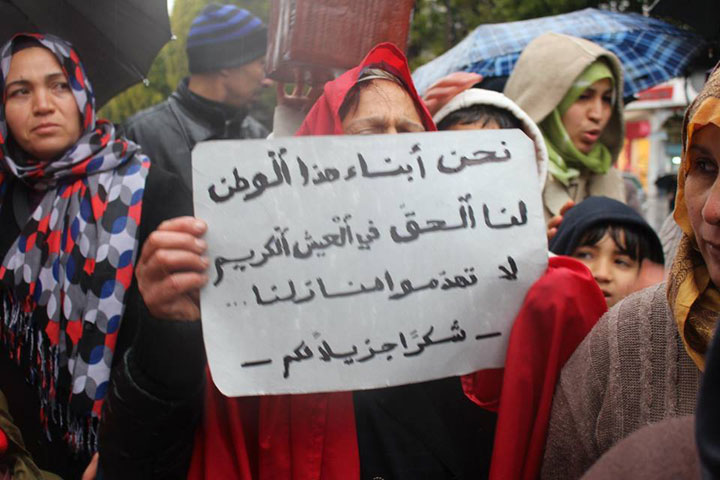 نحن أبناء هذا الوطن
لنا الحقّ في العيش الكريم
لا تهدموا منازلنا...
- شكرًا جزيلاً لكم -